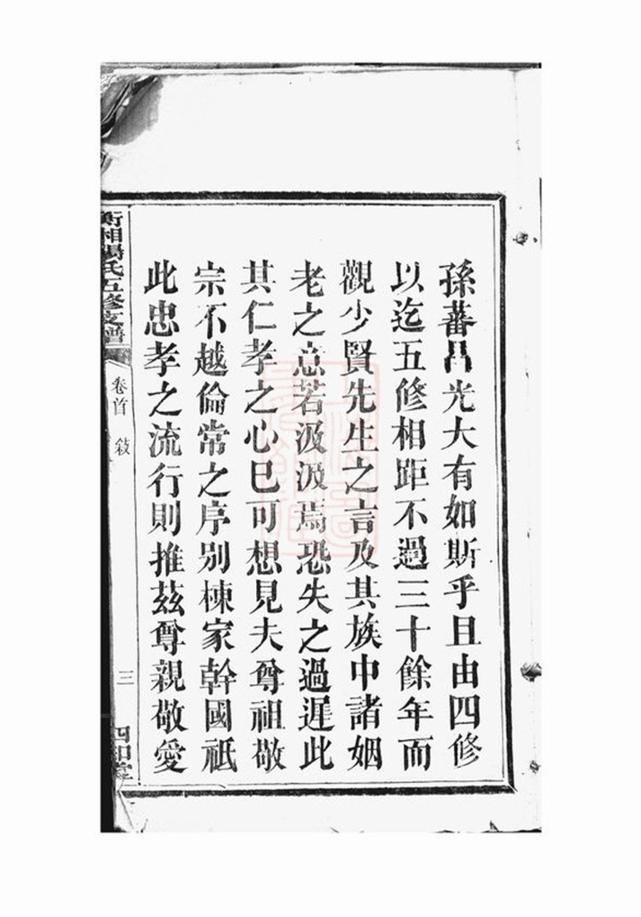 孫蕃昌光大有如斯乎且由四修
以迄五修相距不過三十餘年而
觀少賢先生之言及其族中諸姻
老之意若汲汲焉恐失之過遲此
其仁孝之心已可想見夫尊祖敬
宗不越倫常之序別棟家幹國祇
此忠孝之流行則推茲尊親敬愛
衡湘楊氏五修支譜
卷首 敍
三
四知堂